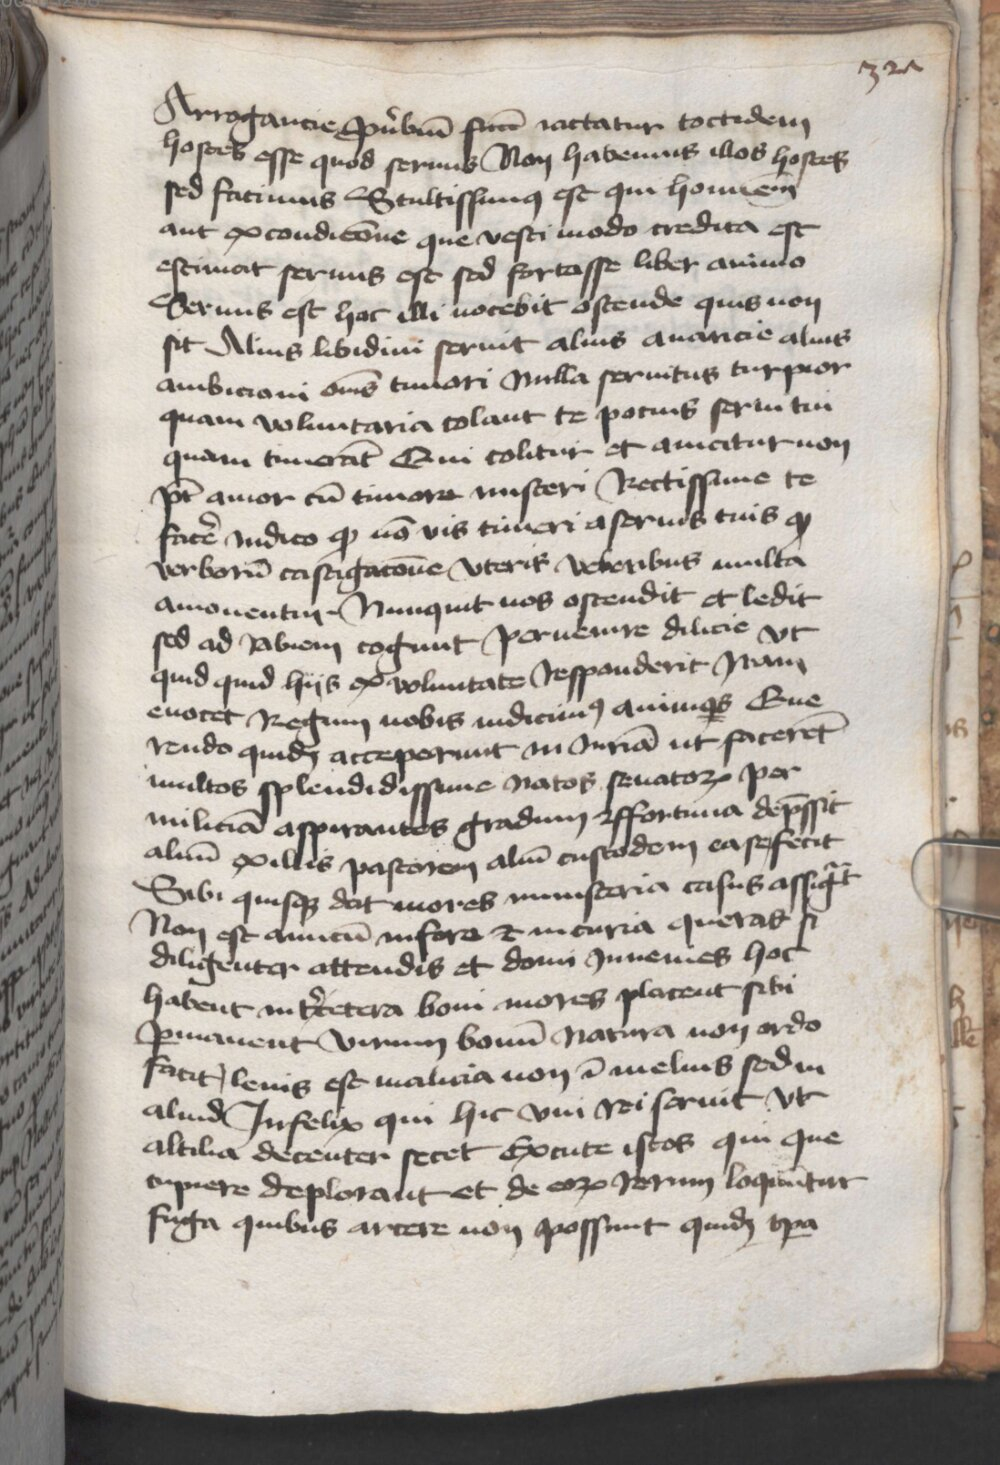 321
Arrogancie ꝓv̉biũ sittī iactatur toctidem
hostes esse quod seruus Non habemus illos hostes
sed facimus Stultissimꝰ est qui hominem̄
aut ex condicōne que vesti modo credita est
estimat seruus est sed fortasse liber animo
Seruus est hoc illi nocebit ostende quis non
sit Alius libidini seruit alius auaricie alius
ambicioni om̄s timori Nulla seruitus turpior
quam voluntaria colant te pocius serui tui
quam timeāt Qui colitur et amatur non
pt̄ amor cū timore misceri Rectissime te
facẻ iudico ꝙ nō vis timeri a seruis tuis ꝙ
verborū castigacōne vteris verberibus multa
amonentur Nunquit nos ostendit et ledit
sed ad rabiem cogunt peruenire dilicie vt
quid quid hijs ex voluntate responderit iram
euocet Regum nobis induimꝰ animos Que
rendo quidē acceperunt iniuriā ut facerēt
multos splendidissime natos senatoꝝ per
miliciā aspirantes gradum fortuna dep̄ssit
aliū ex illis pastorem aliū custodem case fecit
Sibi quisqꝫ dat mores ministeria casus assigāt
Non est amicū in foro et in curia queras si
diligenter attendis et domi inuenies hoc
habent int̉ cetera boni mores placent sibi
ꝑmanent Virum bonū natura non ordo
facit leuis est malicia non ī melius sed in
aliud Infelix qui hic vni rei seruit vt
altilia decenter secet Excute istos qui que
cupiere deplorant et de eoꝝ rerum loquūtur
fuga quibus carere non possunt quidē tꝑa